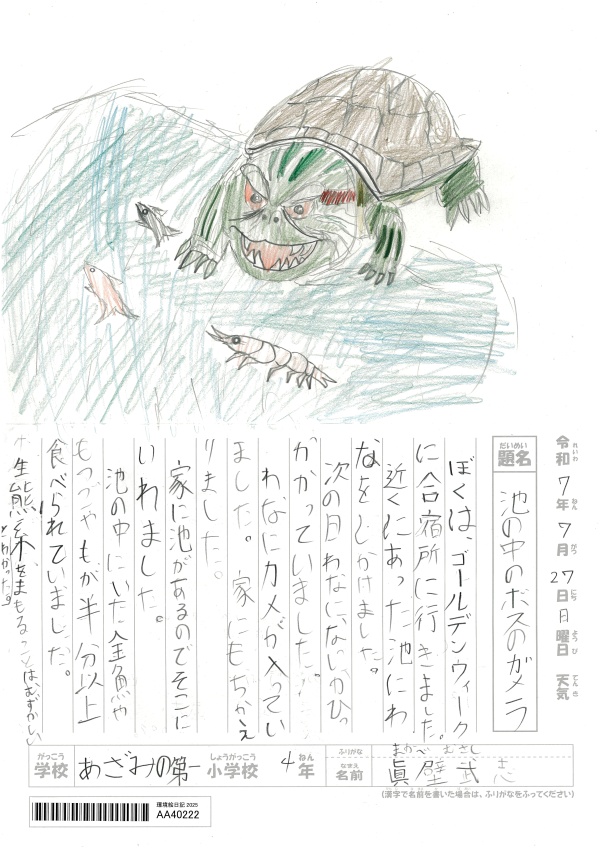 令和7年7月27日日曜日 天気
れいわ ねん がつ にち ようび てんき
だいめい
題名 池の中のボスのガメラ
ぼくは、ゴールデンウィーク
に合宿所に行きました。
近くにあった池にわ
なをしかけました。
次の日わなに、ないかひっ
かかっていました。
わなにカメが入ってい
ました。家にもちかえ
りました。
家に池があるのでそこに
いれました。
池の中にいた金魚や
もつごやもが半分以上
食べられていました。
生態系をまもることは、むずかしい
とわかった。
がっこう しょうがっこう ねん ふりがな まかべ むさし
学校 あざみの第一小学校 4年 なまえ 名前 眞壁武志
(漢字で名前を書いた場合は、ふりがなをふってください)
環境絵日記 2025
AA40222